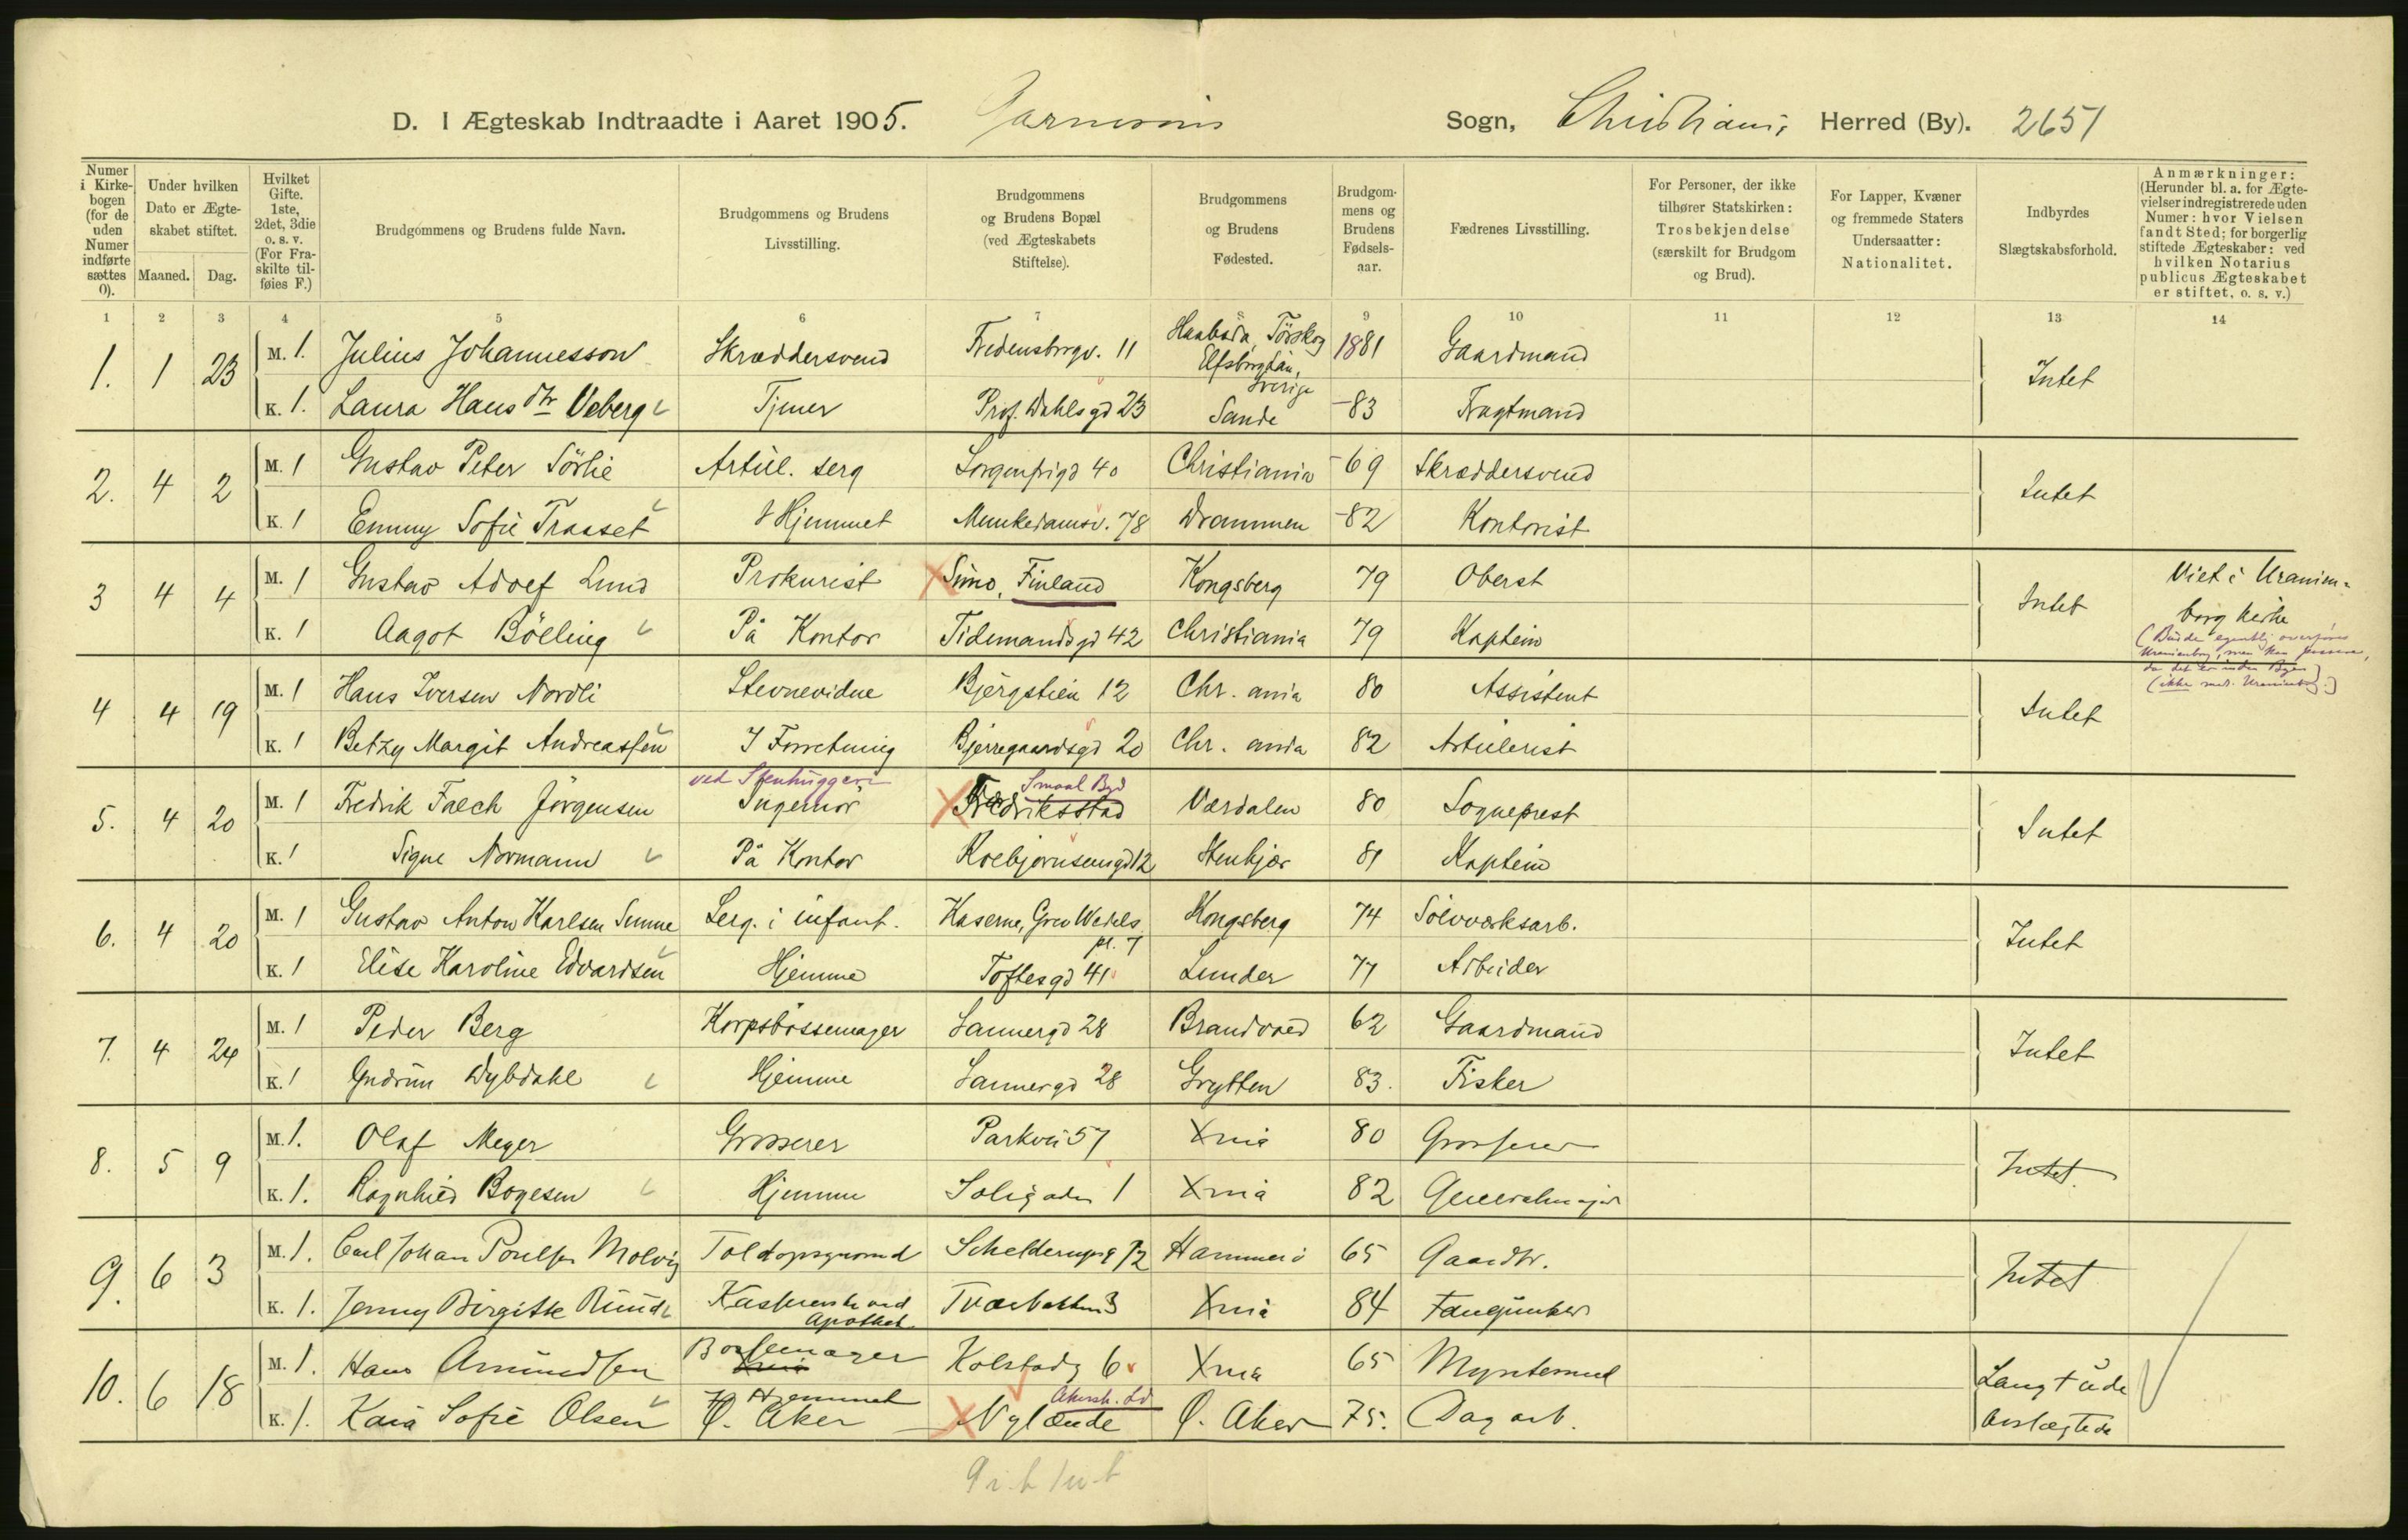 D. I Ægteskab Indtraadte i Aaret 1905. Garnisons Sogn, Christiania Herred (By). 2651
Numer i Kirkebogen (for de uden Numer indførte sættes 0).
Under hvilken Dato er Ægteskabet stiftet.
Maaned. Dag.
Hvilket Gifte. 1ste, 2det, 3die o. s. v. (For Fraskilte tilføies F.)
Brudgommens og Brudens fulde Navn.
Brudgommens og Brudens Livsstilling.
Brudgommens og Brudens Bopæl (ved Ægteskabets Stiftelse).
Brudgommens og Brudens Fødested.
Brudgommens og Brudens Fødselsaar.
Fædrenes Livsstilling.
For Personer, der ikke tilhører Statskirken: Trosbekjendelse (særskilt for Brudgom og Brud).
For Lapper, Kvæner og fremmede Staters Undersaatter: Nationalitet.
Indbyrdes Slægtskabsforhold.
Anmærkninger: (Herunder bl. a. for Ægtevielser indregistrerede uden Numer: hvor Vielsen fandt Sted; for borgerlig stiftede Ægteskaber: ved hvilken Notarius publicus Ægteskabet er stiftet, o. s. v.)
1 2 3 4 5 6 7 8 9 10 11 12 13 14
1. 1 23 M. 1. Julius Johannesson Skræddersvend Fredensborgv. 11 Haabøda, Törskog Elfsborglän, Sverige 1881 Gaardmand Intet
K. 1. Laura Hansdtr Veberg Tjener Prof. Dahlsgd 23 Sande -83 Fragtmand
2. 4 2 M. 1 Gustav Peter Sörlie Artill. serg Sorgenfrigd 40 Christiania -69 Skræddersvend Intet
K. 1 Emmy Sofie Traaset I Hjemmet Munkedamsv. 78 Drammen -82 Kontorist
3 4 4 M. 1 Gustav Adolf Lund Prokurist Simo, Finland Kongsberg 79 Oberst Intet Viet i Uranienborg Kirke
K. 1 Aagot Bölling På Kontor Tidemandsgd 42 Christiania 79 Kaptein
4 4 19 M. 1 Hans Iversen Nordli Stevnevidne Bjergstien 12 Chr. ania 80 Assistent Intet
K. 1 Betzy Margit Andreassen I Forretning Bjerregaardsgd 20 Chr. ania 82 Artillerist
5. 4 20 M. 1 Fredrik Falch Jörgensen ved Stenhuggeri Ingeniør Fredriksstad Smaal Byd Værdalen 80 Sogneprest Intet
K. 1 Signe Normann På Kontor Kolbjørnsensgd 12 Stenkjær 81 Kaptein
6. 4 20 M. 1 Gustav Anton Karlsen Sunne Serg. i infant. Kaserne, Grev Wedels pl. 7 Kongsberg 74 Sölvværksarb. Intet
K. 1 Elise Karoline Edvardsen Hjemme Toftesgd 41 Lunder 77 Arbeider
7. 4 24 M. 1 Peder Berg Korpsbøssemager Sannergd 28 Brandvold 62 Gaardmand Intet
K. 1 Gudrun Dybdahl Hjemme Sannergd 28 Grytten 83. Fisker
8. 5 9 M. 1. Olaf Meyer Grosserer Parkvei 57 Xnia 80 Grosserer Intet.
K. 1. Ragnhild Bogesen Hjemme Soligaden 1 Xnia 82 Generalmajor
9. 6 3 M. 1. Carl Johan Poulsen Molvig Toldopsynsmd Schelderupsg 12 Hammerö 65 Gaardbr. Intet
K. 1. Jenny Birgitte Rund Kasserske ved Apothek Tværbakken 3 Xnia 84
10. 6 18 M. 1. Hans Amundsen Bøssemager Kolstadg 6 Xnia 65 Myntsmed Langt ude beslægtede
K. 1. Kaia Sofie Olsen Hjemmet Ø. Aker Nylænde Akersh. Ld Ø. Aker 75. Dagarb.